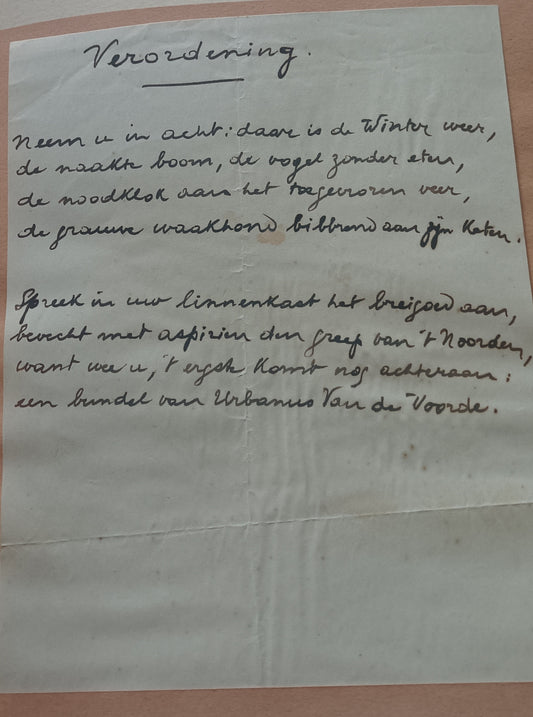 Verordening.
Neem u in acht: daar is de Winter weer,
de naakte boom, de vogel zonder eten,
de noodklok aan het toegevroren veer,
de grauwe waakhond bibbrend aan zijn keten.
Spreek in uw linnenkast het breigoed aan,
bevecht met aspirien den greep van 't Noorden,
want wee u, 't ergste komt nog achteraan:
een bundel van Urbanus Van de Voorde.